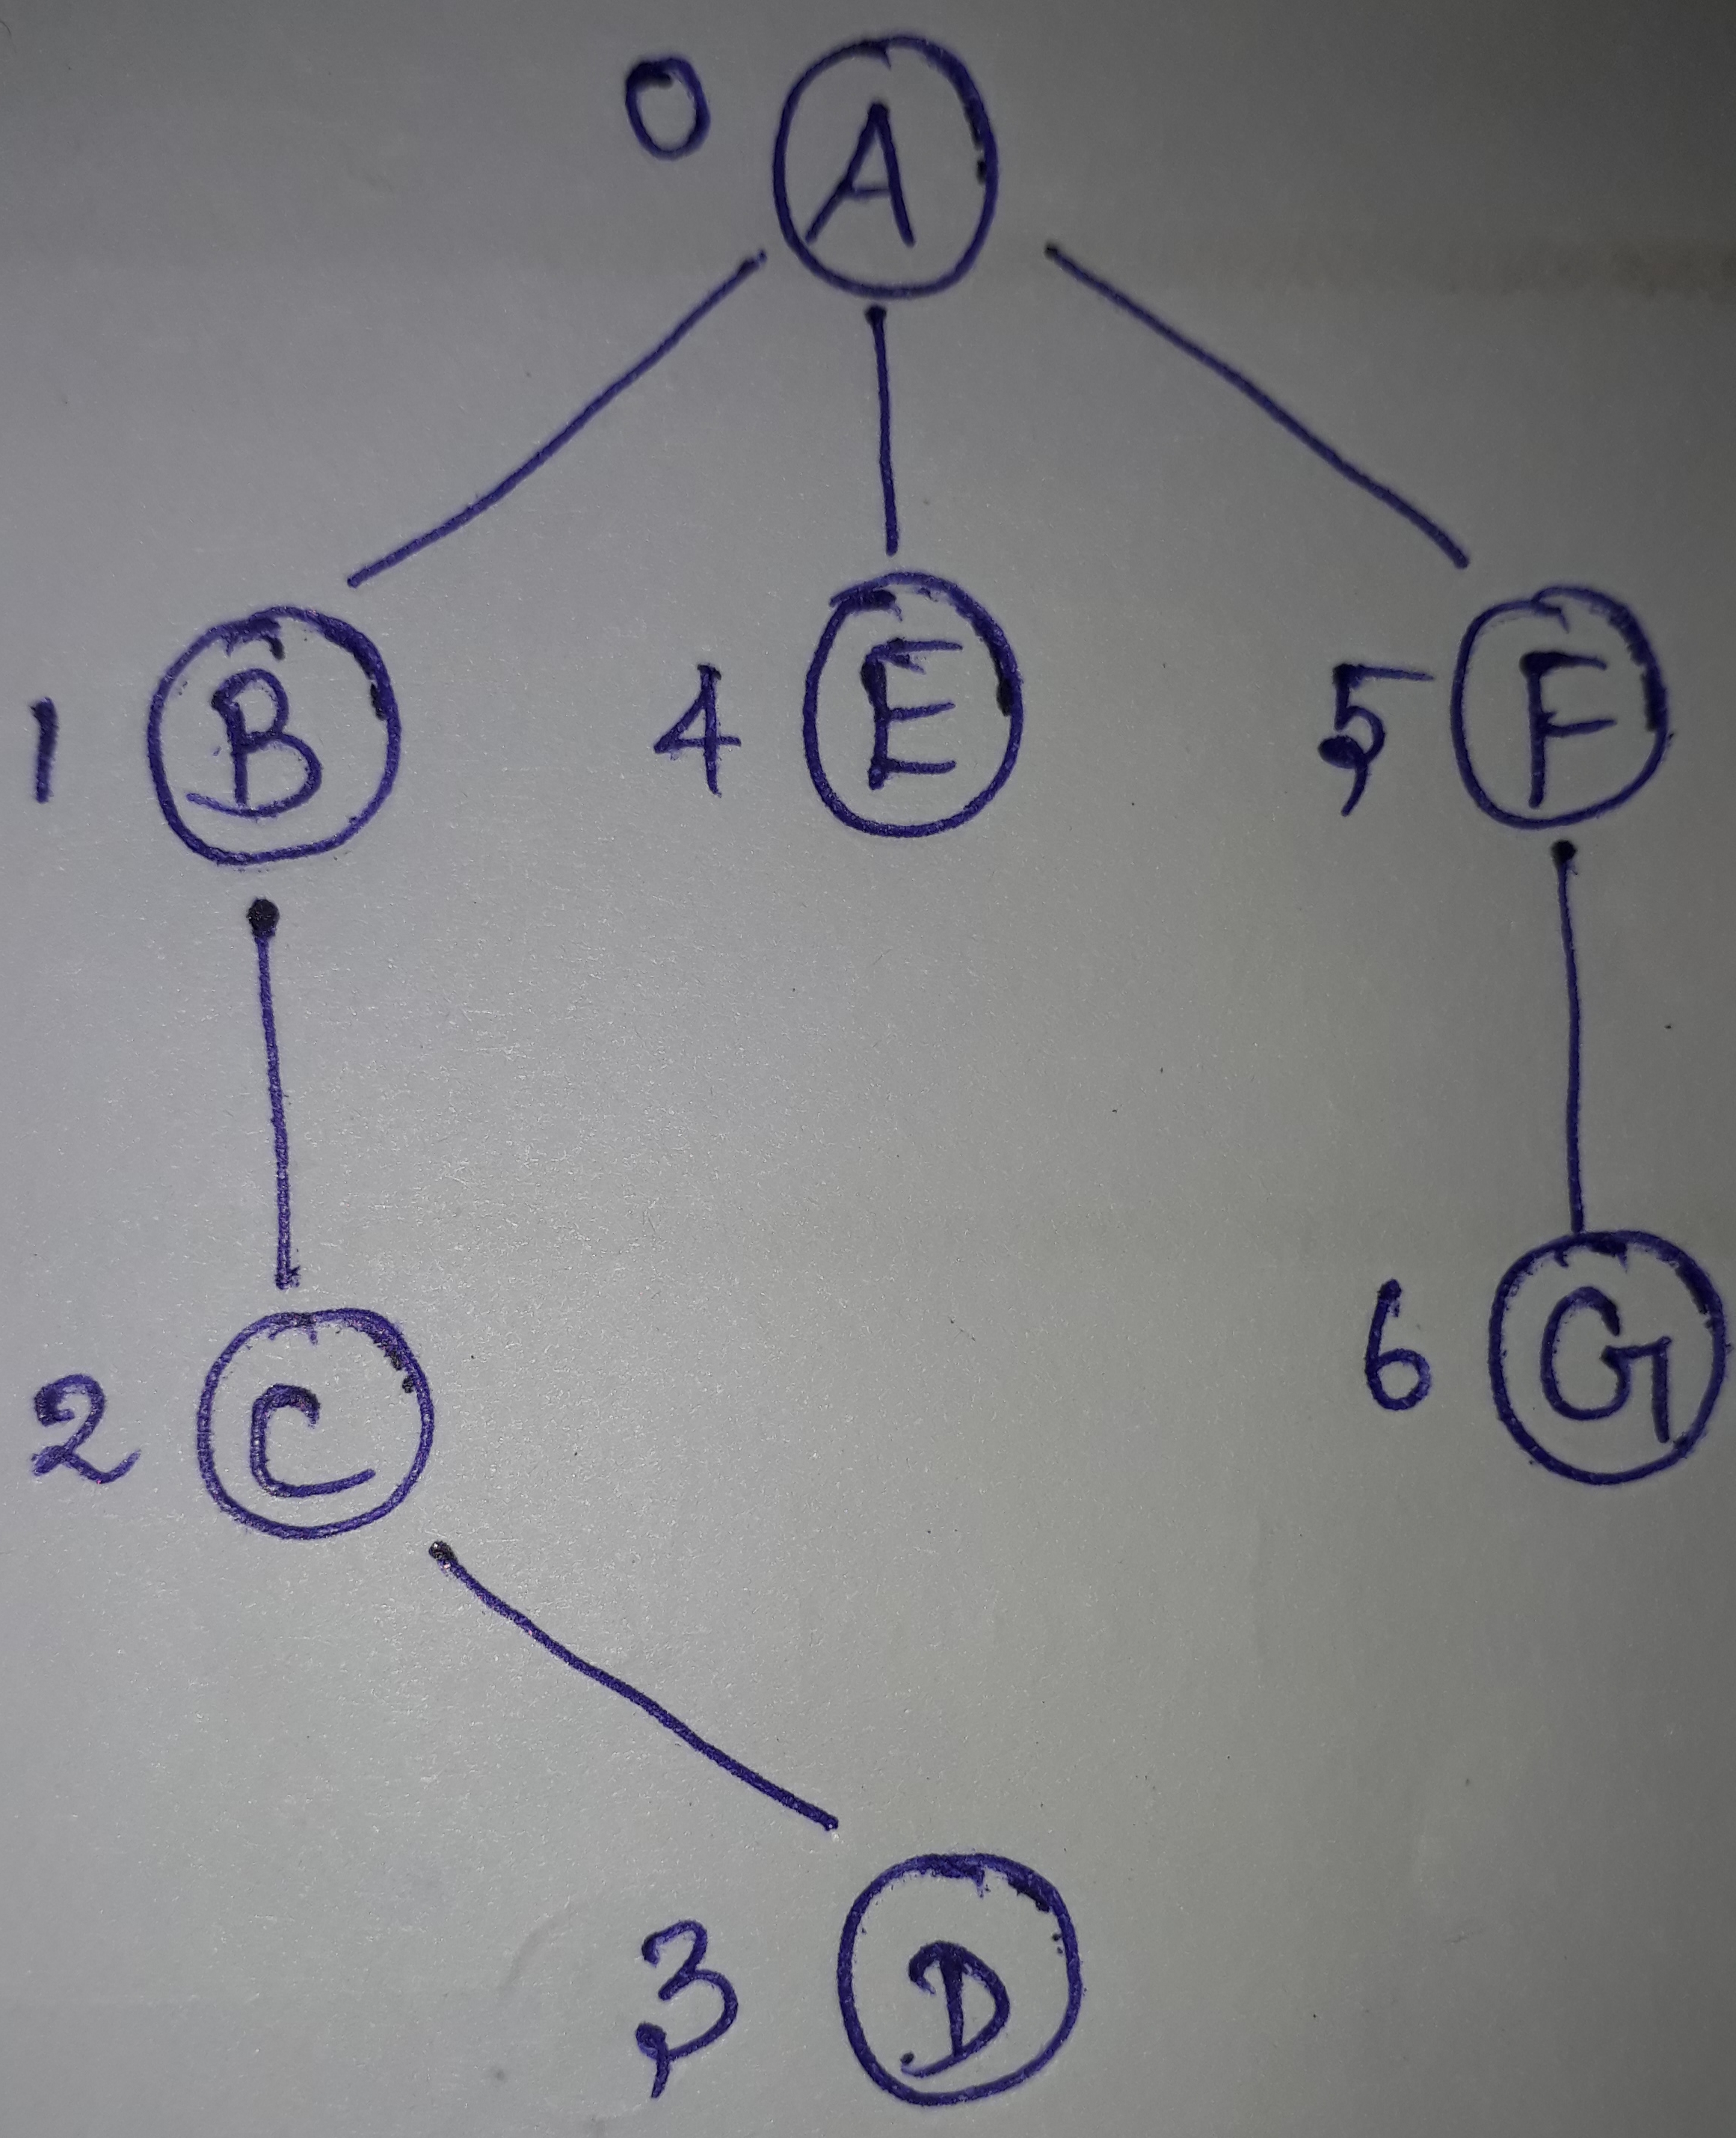 0 A
1 B 4 E 5 F
2 C 6 G
3 D